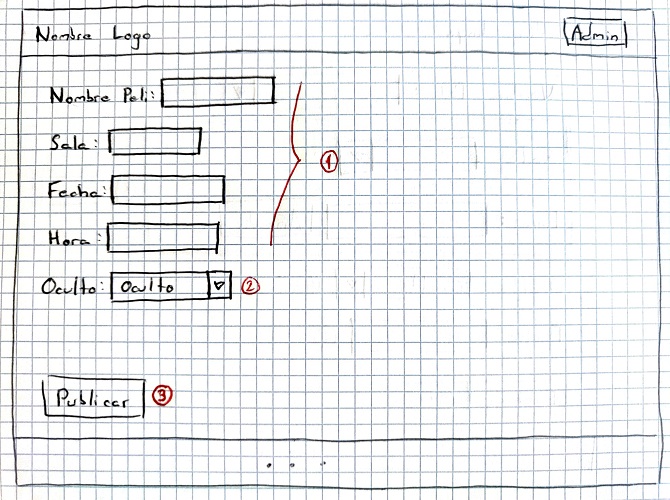 Nombre Logo Admin
Nombre Peli:
1
Sala:
Fecha:
Hora:
Oculto: Oculto 2
Publicar 3
...